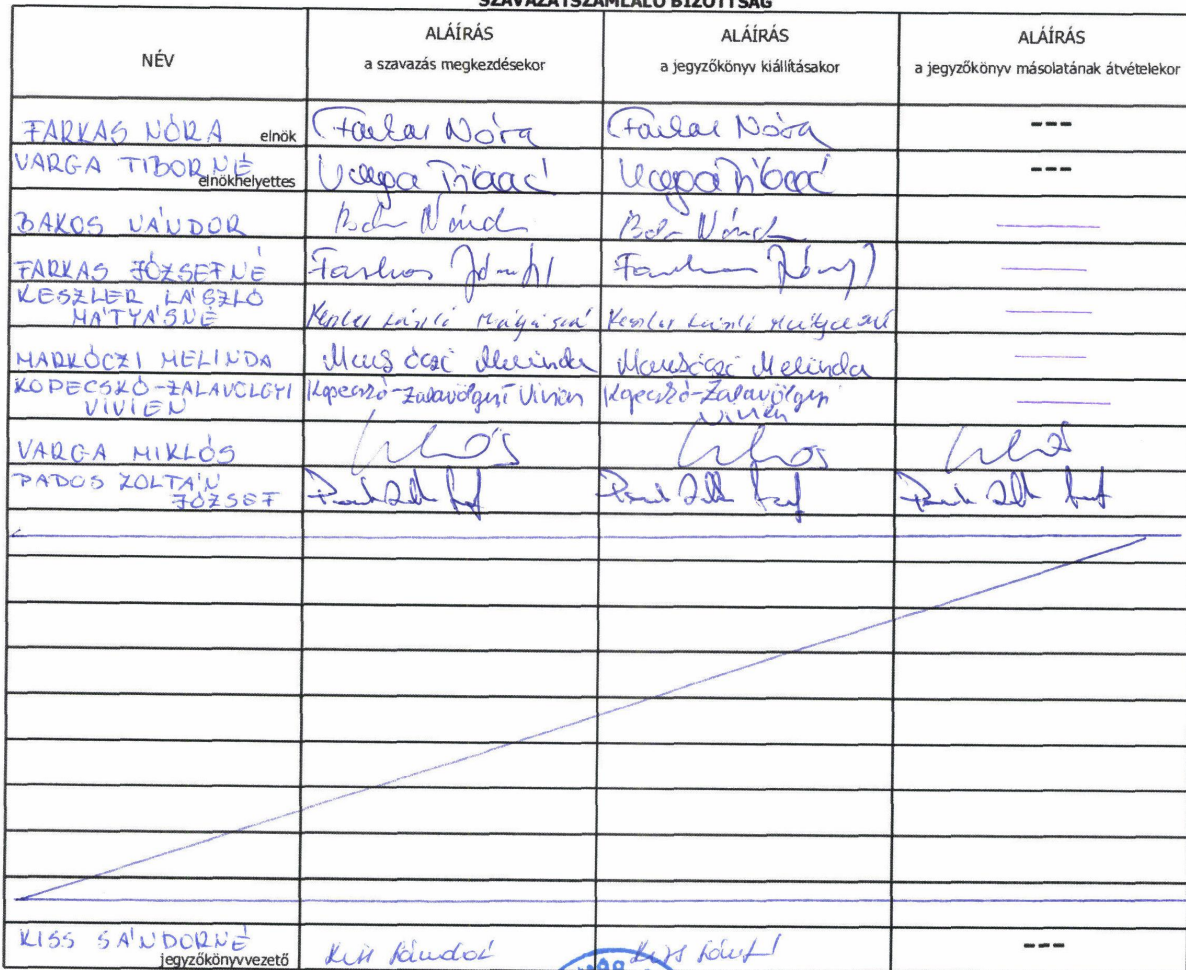 SZAVAZATSZÁMLÁLÓ BIZOTTSÁG
NÉV
ALÁÍRÁS
a szavazás megkezdésekor
ALÁÍRÁS
a jegyzőkönyv kiállításakor
ALÁÍRÁS
a jegyzőkönyv másolatának átvételekor
FARKAS NÓRA elnök Farkas Nóra Farkas Nóra ---
VARGA TIBORNÉ elnökhelyettes Varga Tiborné Varga Tiborné ---
BAKOS NÁNDOR
FARKAS JÓZSEFNÉ Farkas Farkas
KESZLER LÁSZLÓ
MÁTYÁSNÉ Keszler László Mátyásné Keszler László Mátyásné
MARKÓCZI MELINDA Markóczi Melinda Markóczi Melinda
KOPECSKÓ-ZALAVÖLGYI
VIVIEN Kopecskó-Zalavölgyi Vivien Kopecskó-Zalavölgyi
Vivien
VARGA MIKLÓS
PADOS ZOLTÁN
JÓZSEF
KISS SÁNDORNÉ jegyzőkönyvvezető Kiss Kiss ---